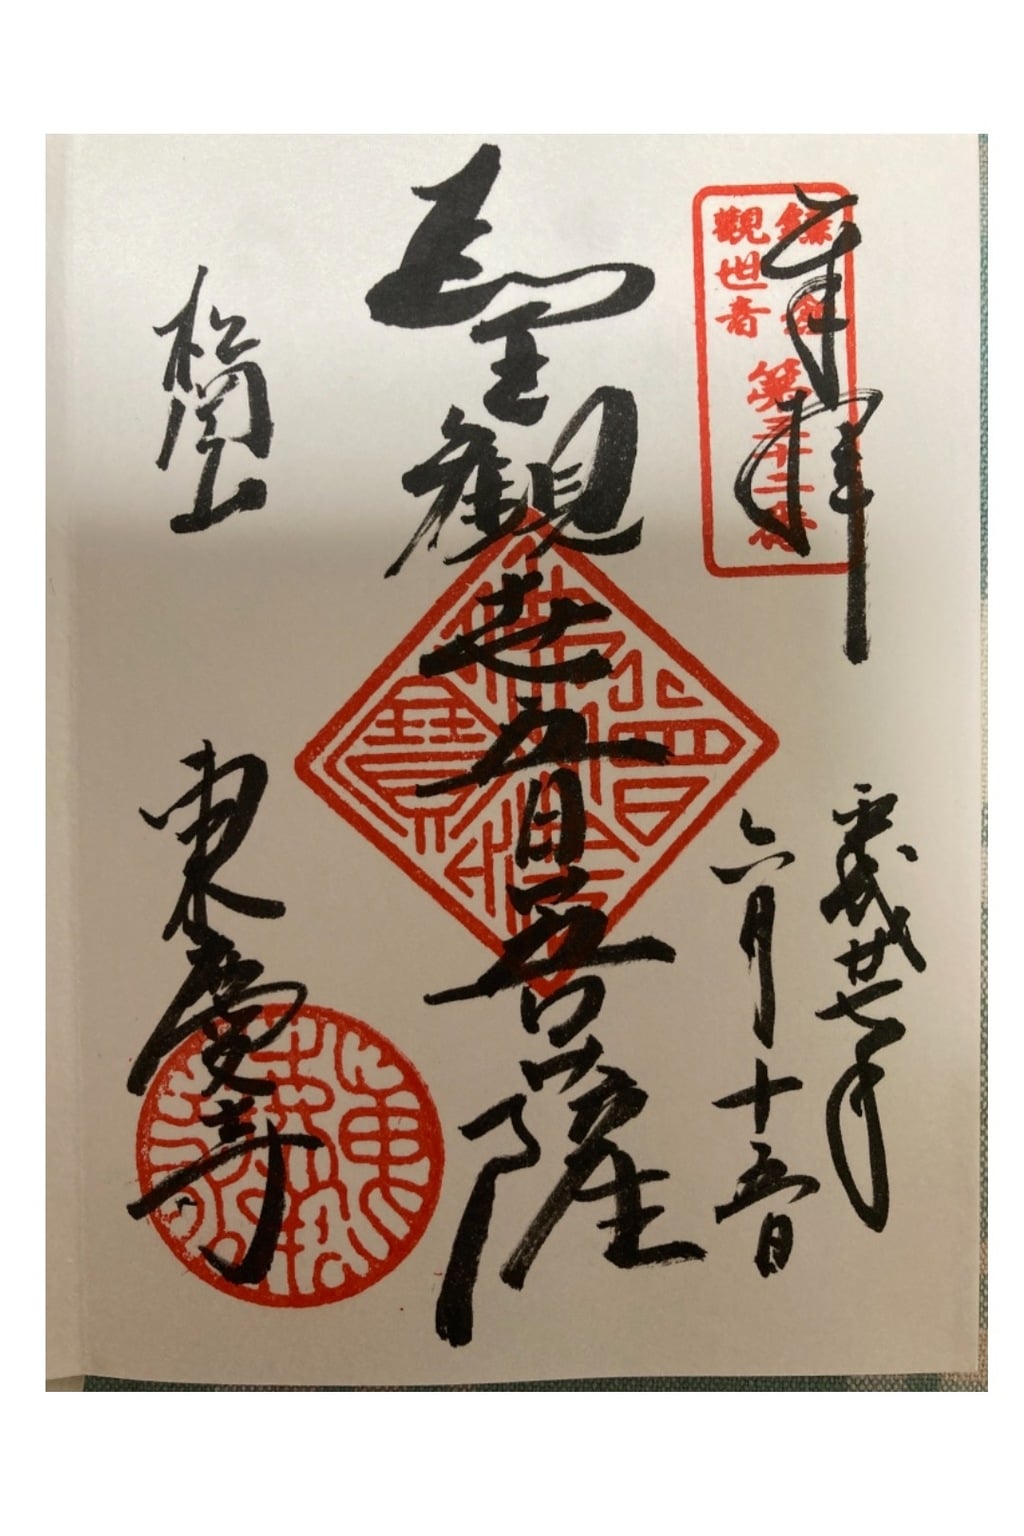 奉拝
鎌倉
觀世音
第三十二番
平成廿七年
六月十五日
聖觀世音菩薩
松岡山
東慶寺